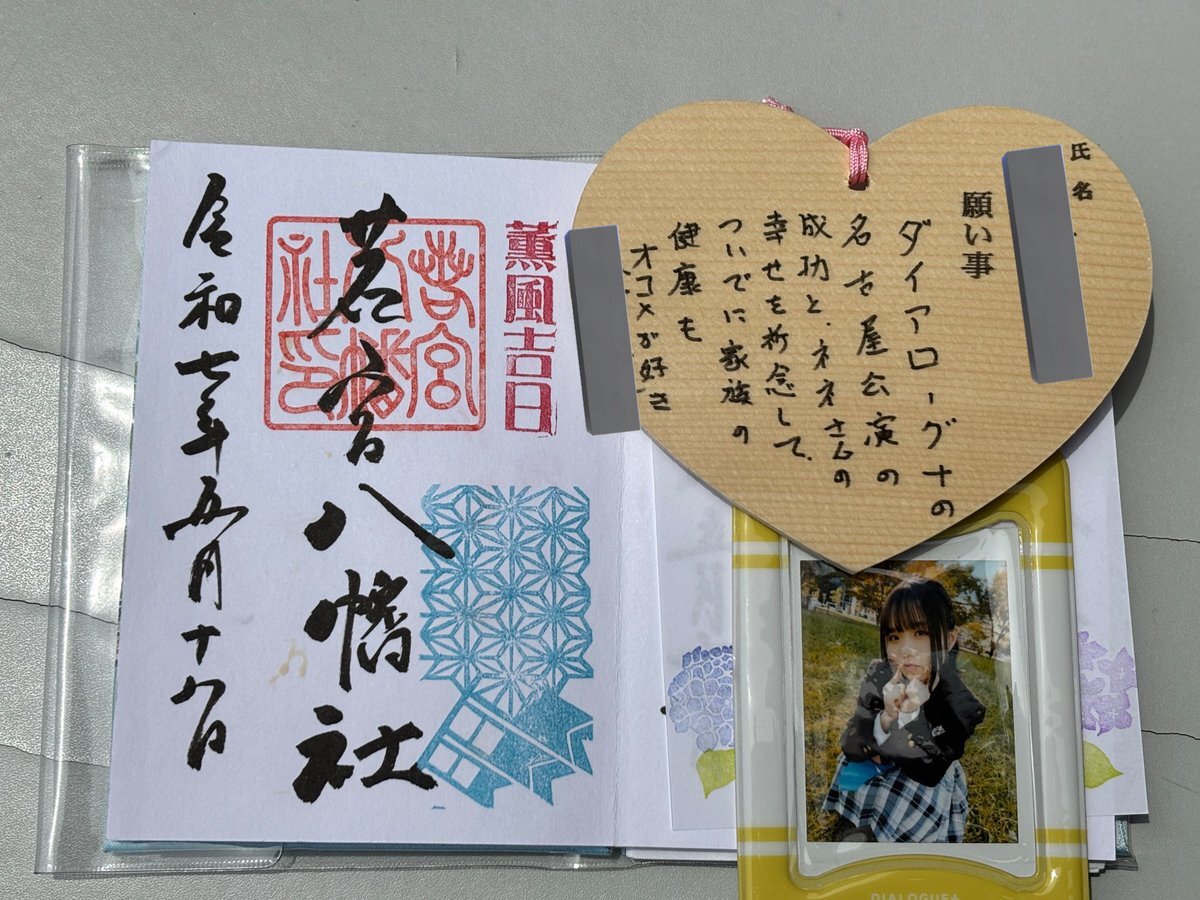 薫風吉日
若宮八幡社印
若宮八幡社
令和七年五月十八日
氏名
願い事
ダイアローグ+の
名古屋公演の
成功と、ネネさんの
幸せを祈念して、
ついでに家族の
健康も
オコメが好き
DIALOGUE+